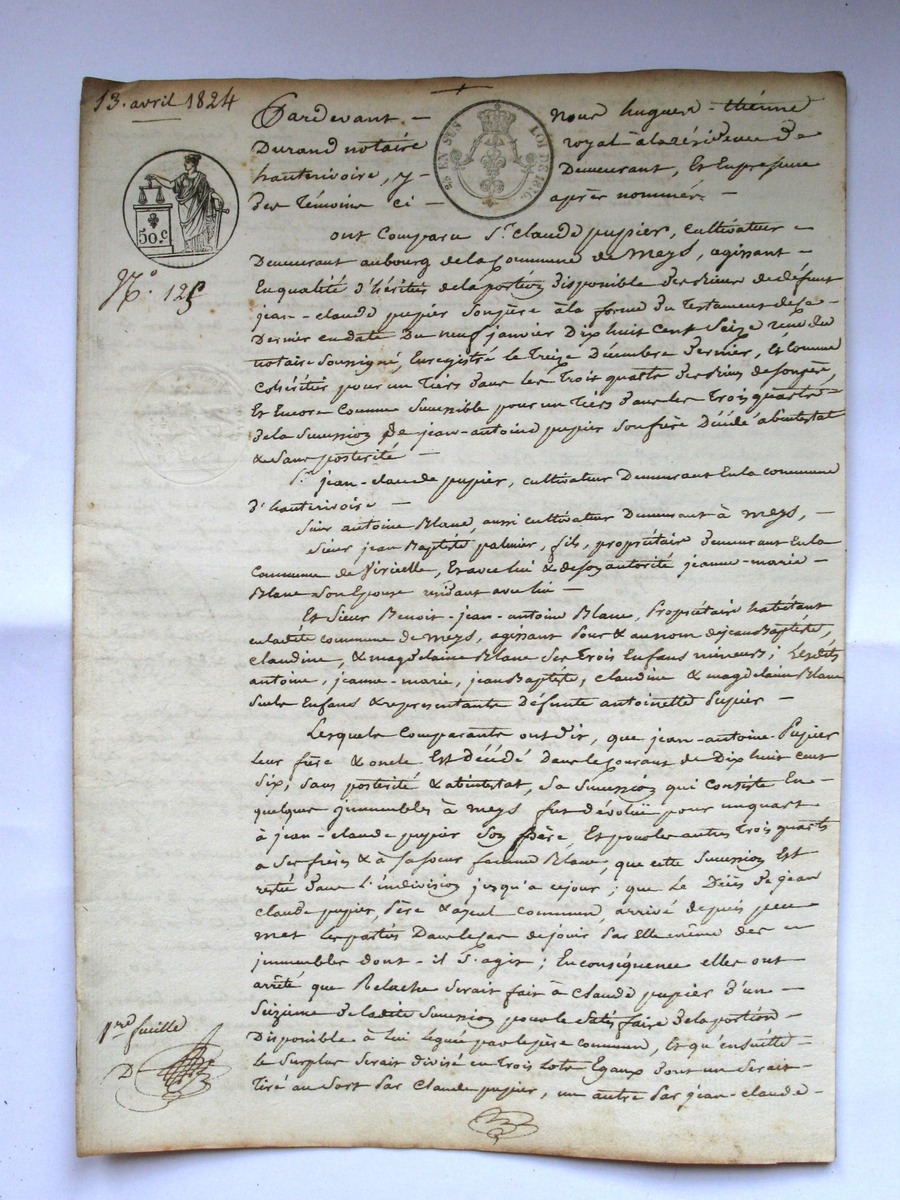 13. avril 1824
Pardevant — Nous hugues-thénne
Durand notaire royal à la résidence de
hauterivoire, y — Demeurant, Et En présence
des Témoins ci — après nommés —
EN SUS LOI DE 1816.
50.c
N.° 125
ont Comparu S.r Claude pupier, cultivateur —
Demeurant au bourg de la Commune de Meys, agissant —
En qualité d'héritier de la portion disponible des Biens de défunt
jean-claude pupier son père à la forme du Testament de ce
Dernier en date Du neuf janvier Dix huit Cent Seize reçu du
notaire Soussigné, Enregistré le Treize Décembre Dernier, Et Comme
Cohéritier pour un Tiers dans les Trois quarts des Biens de son père,
Et Encore Comme Successible pour un Tiers dans les Trois quarts
de la Succession De jean-antoine pupier son frère Décédé abintestat
& sans postérité —
S.r jean-claude pupier, cultivateur Demeurant En la commune
d'hauterivoire —
Sieur antoine Blanc, aussi cultivateur Demeurant à Meys, —
Sieur jean Baptiste palmier, fils, propriétaire Demeurant En la
Commune de Viricelle, Et avec lui & de son autorité jeanne-marie —
Blanc son Epouse résidant avec lui —
Et Sieur Benoit-jean-antoine Blanc, Propriétaire habitant
en ladite commune de Meys, agissant Pour & au nom de jean Baptiste,
Claudine, & magdelaine Blanc Ses Trois Enfans mineurs; Lesdits
antoine, jeanne-marie, jean Baptiste, claudine & magdelaine Blanc
Seuls Enfans & représentants Défunte antoinette Pupier —
Lesquels Comparants ont dit, que jean-antoine Pupier
leur frère & oncle Est Décédé Dans le Courant de Dix huit cent
Six, sans postérité & abintestat, sa Succession qui Consiste En —
quelques immeubles à Meys fut dévolue pour un quart
à jean-claude pupier Son père, Et pour les autres Trois quarts
a Ses frères & à sa soeur femme Blanc, que cette Succession Est
restée dans l'indivision jusqu'a ce jour; que Le Décès de jean
Claude pupier, Père & ayeul commun, arrivé depuis peu
met les parties Dans le cas de jouir Par Elle même des —
immeubles dont-il s'agit; En conséquence elles ont
arrêté que Relache Serait fait à Claude pupier d'un —
Seizième de ladite Succession pour le Satisfaire de la portion —
Disponible à lui léguée par le père commun, Et qu'ensuite —
le Surplus Serait divisé en Trois lots Egaux dont un Serait —
Tiré au Sort Par Claude pupier, un autre Par jean-claude —
1.ere feuille
D